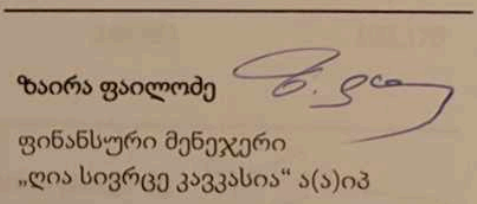 ზაირა ფაილოძე
ფინანსური მენეჯერი
„ღია სივრცე კავკასია“ ა(ა)იპ